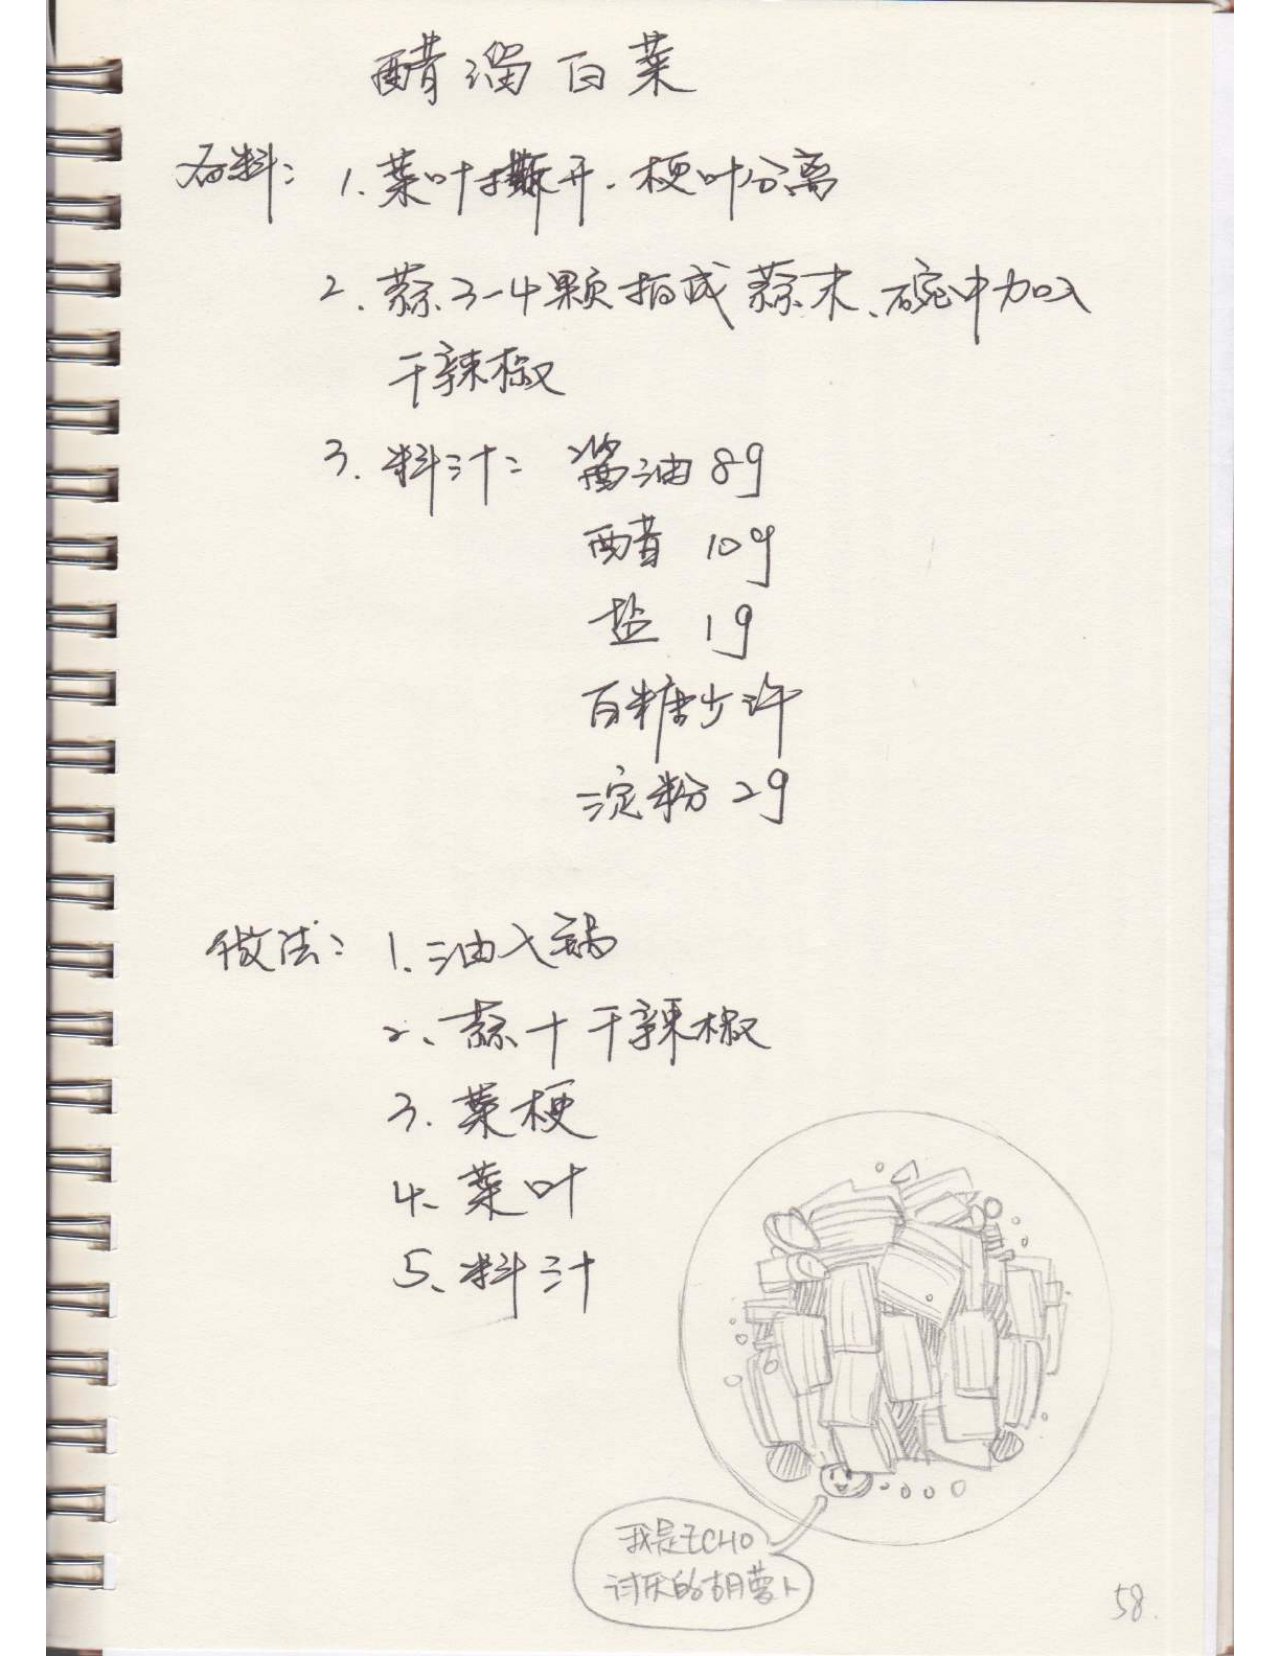 醋溜白菜
备料: 1. 菜叶撕开. 梗叶分离
2. 蒜3-4颗拍成蒜末、碗中加入
干辣椒
3. 料汁: 酱油 8g
醋 10g
盐 1g
白糖少许
淀粉 2g
做法: 1. 油入锅
2、蒜+干辣椒
3. 菜梗
4、菜叶
5、料汁
我是ECHO
讨厌的胡萝卜
58.